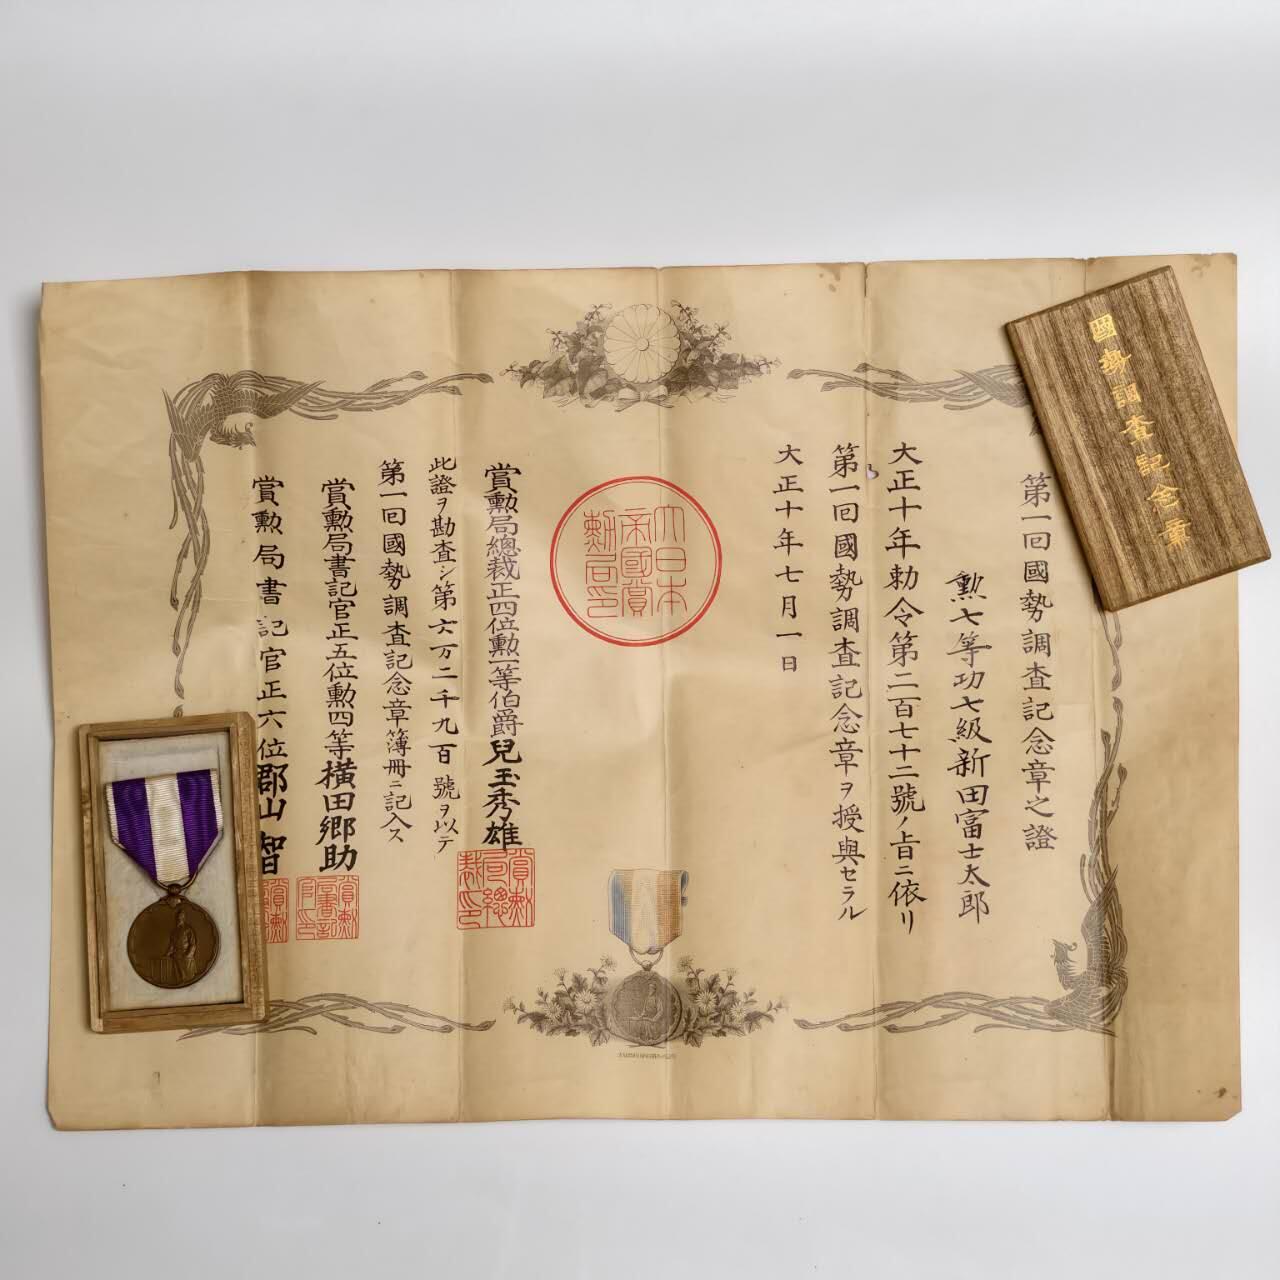 國勢調査記念章
第一回國勢調査記念章之證
勲七等功七級新田富士太郎
大正十年勅令第二百七十二號ノ旨ニ依リ
第一回國勢調査記念章ヲ授與セラル
大正十年七月一日
大日本
帝國賞
勲局印
賞勲局總裁正四位勲一等伯爵兒玉秀雄
賞勲
局總
裁印
此證ヲ勘査シ第六万二千九百號ヲ以テ
第一回國勢調査記念章簿冊ニ記入ス
賞勲局書記官正五位勲四等横田郷助
賞勲
局書記
官印
賞勲局書記官正六位郡山智
賞勲